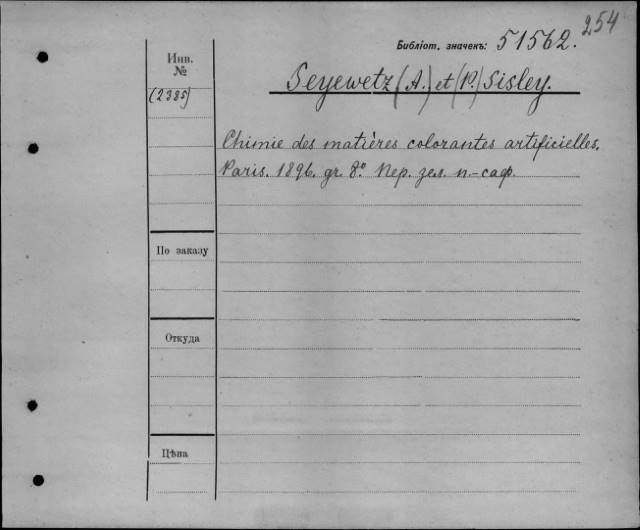 254
Библіот. значекъ: 51562.
Инв. №
(2385)
Seyewetz (A.) et (P.) Sisley.
Chimie des matières colorantes artificielles.
Paris. 1896. gr. 8° Пер. зел. п.-саф.
По заказу
Откуда
Цѣна